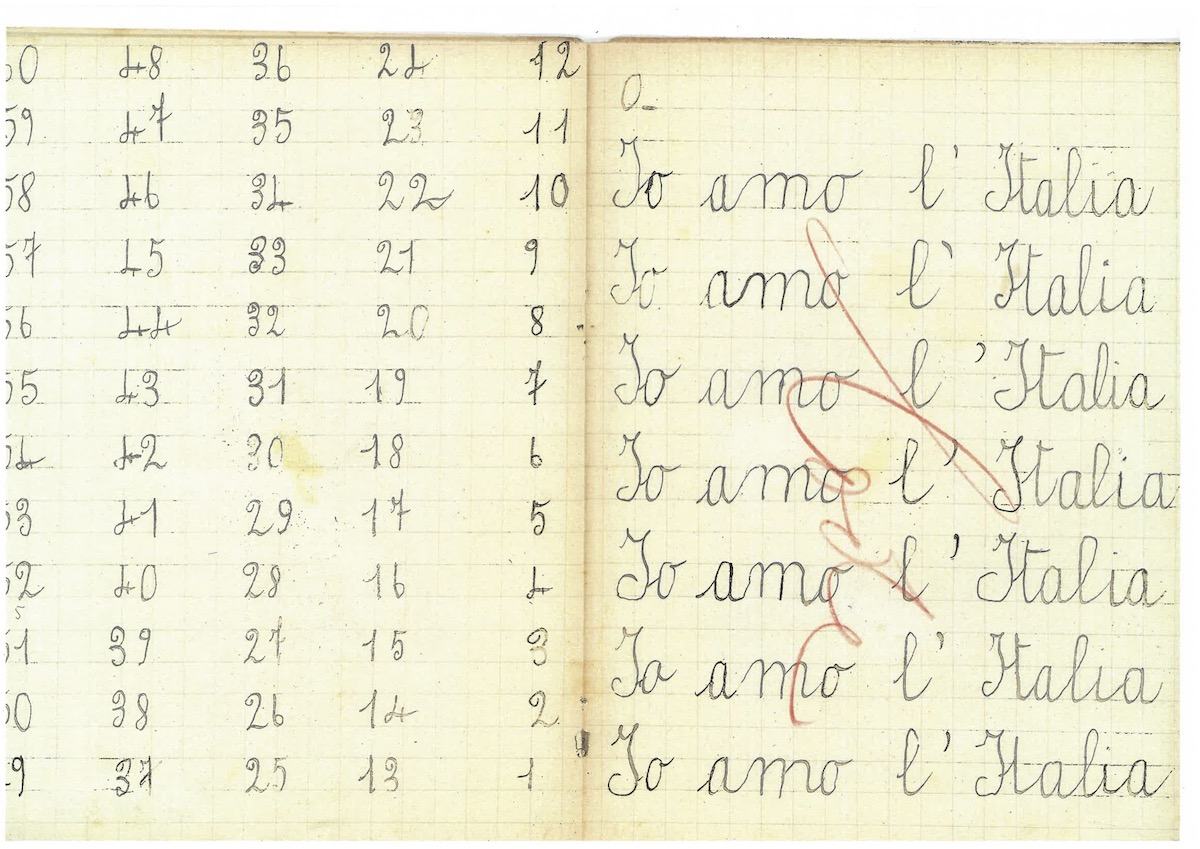 60 48 36 24 12
59 47 35 23 11
58 46 34 22 10
57 45 33 21 9
56 44 32 20 8
55 43 31 19 7
54 42 30 18 6
53 41 29 17 5
52 40 28 16 4
51 39 27 15 3
50 38 26 14 2
49 37 25 13 1
O_
Io amo l' Italia
Io amo l' Italia
Io amo l' Italia
Io amo l' Italia
Io amo l' Italia
Io amo l' Italia
Io amo l' Italia